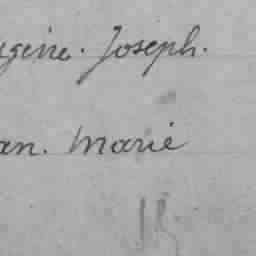 ugène. Joseph.
an. Marie